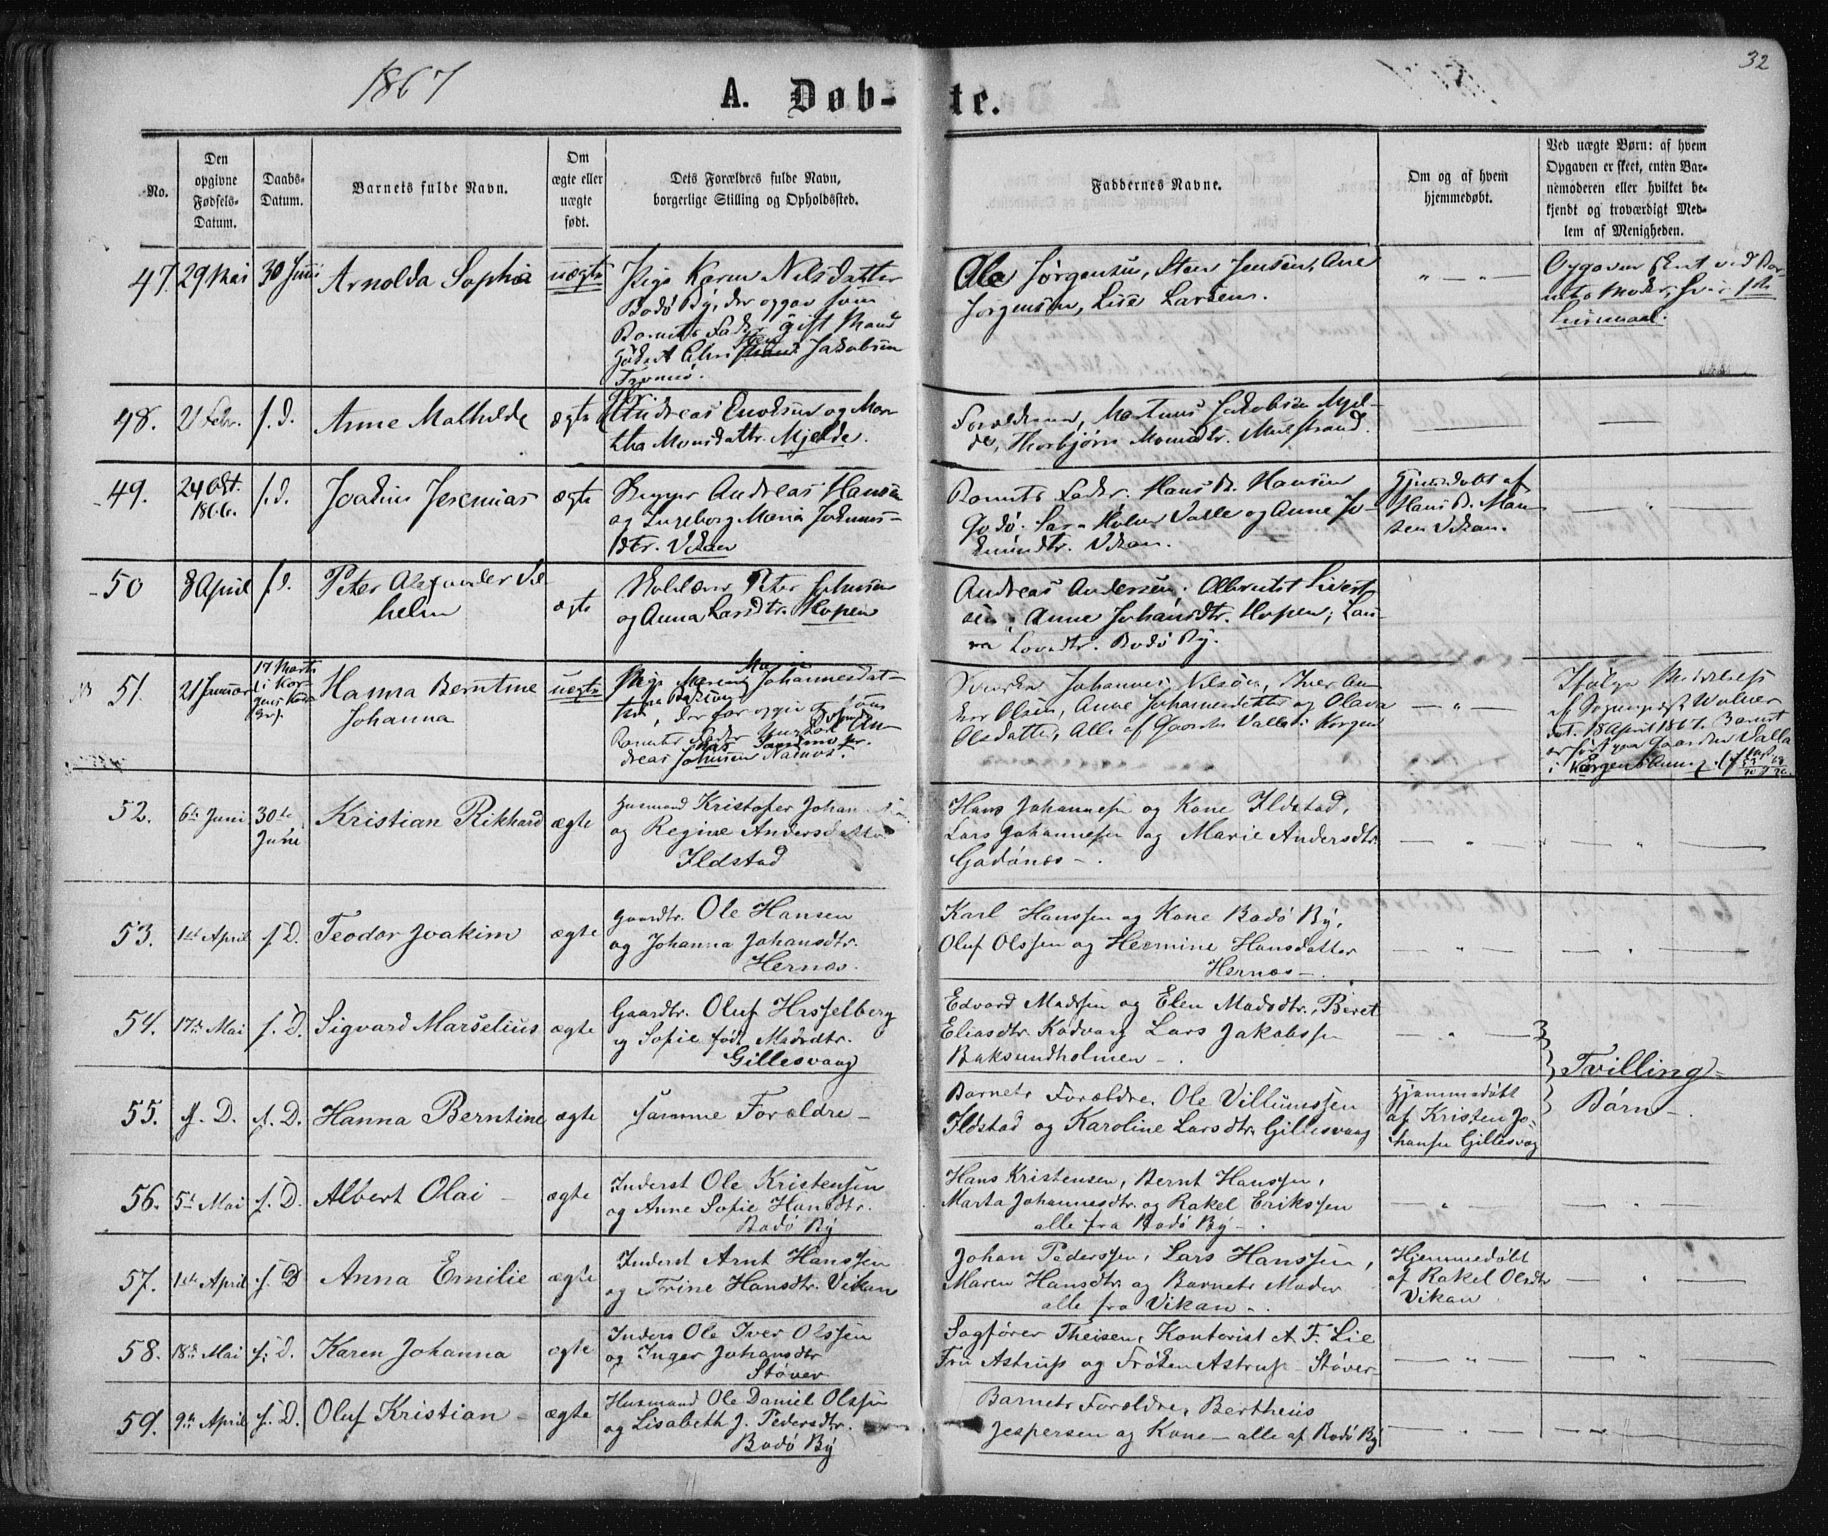 1867
32
A. Døb-
te.
No.
Den opgivne Fødsels-Datum.
Daabs-Datum.
Barnets fulde Navn.
Om ægte eller uægte født.
Dets Forældres fulde Navn,
borgerlige Stilling og Opholdssted.
Faddernes Navne.
Om og af hvem
hjemmedøbt.
Ved uægte Børn: af hvem
Opgaven er skeet, enten Bar-
nemoderen eller hvilket be-
kjendt og troværdigt Med-
lem af Menigheden.
47. 29 Mai 30 Juni Arnolda Sophia uægte
Pige Karen Nilsdatter
Bodø By, der opgav som
Barnets Fader gift Mand
Jakobsen
Tromsø.
Ole Jørgensen, Sten Jensen, Ane
Jørgensen, Lise Larsen.
Opgaven skeet ved Bar-
nets Moder,
Leiermaal.
48. 2 Febr. f. d. Anne Mathilde ægte
Andreas Enoksen og Mar-
tha Monsdattr. Mjelde.
Forældrene, Martinus Jakobsen Mjel-
de, Thorbjørn Monsdtr. Mulstrand.
49. 24 Okt. 1866. f. d. Joakim Jeremias ægte
Andreas Hansen
og Ingeborg Maria
dtr. Vikan
Barnets Fader. Hans B. Hansen
Valle og Anne Jo-
Vikan.
Hjemmedøbt af
Hans B. Han-
sen Vikan.
50 8 April f. d. Peter Alexander Vil
helm ægte
Peter Johnsen
og Anna Larsdtr. Hopen
Andreas Andersen, Albregt Sivert-
sen, Anne Johansdtr. Hopen,
Bodø By.
51. 21 Januar 17 Marts
Hanna Berntine
Johanna uægte
Pige Maren Johannesdat-
ter, der har opgivet som
Barnets Fader Ungkarl An-
dreas Johnsen
Johannes Nilsen, Iver An-
Olsen, Anne Johannesdatter og Olava
Olsdatter, Alle af Gaarden Valla i Korgen
Ifølge Meddelelse
af Sogneprest
dat. 18 April 1867. Barnet
er født paa Gaarden Valla
i Korgens Annex
52. 6te Juni 30te Juni Kristian Rikhard ægte
Husmand Kristofer Johan
og Regine Andersdatter
Ildstad
Hans Johannesen og Kone Ildstad,
Lars Johannesen og Marie Andersdtr.
Godønæs –.
53. 1ste April f. D. Teodor Joakim ægte
Gaardtr. Ole Hansen
og Johanna Johansdtr.
Hernæs.
Karl Hanssen og Kone Bodø By,
Oluf Olssen og Hermine Hansdatter
Hernæs –.
54. 17de Mai f. D. Sigvard Marselius ægte
Gaardtr. Oluf Hesselberg
og Sofie født Madsdtr.
Gillesvaag
Edvard Madssen og Elen Madsdtr., Beret
Eliasdtr. Kodvaag Lars Jakobssen
Baksundholmen –.
Tvilling-
Børn –.
55. f. D. f. D. Hanna Berntine ægte
Samme Forældre –
Barnets Forældre, Ole Villumssen
Ildstad og Karoline Larsdtr. Gillesvaag
Hjemmedøbt
af Kristen Jo-
hansen Gillesvag
56. 5te Mai f. D. Albert Olai – ægte
Inderst Ole Kristensen
og Anne Sofie Hansdtr.
Bodø By
Hans Kristensen, Bernt Hanssen,
Marta Johannesdtr. og Rakel Erikssen
alle fra Bodø By –.
57. 1ste April f. D Anna Emilie ægte
Inderst Arnt Hanssen
og Trine Hansdtr. Vikan
Johan Pederssen, Lars Hanssen,
Maren Hansdtr. og Barnets Moder
alle fra Vikan –.
Hjemmedøbt
af Rakel Olsdtr.
Vikan
58. 18de Mai f. D. Karen Johanna ægte
Inders Ole Iver Olssen
og Inger Johansdtr
Støver
Sagfører Theisen, Kontorist A. F. Lie
Fru Astrup og Frøken Astrup – Støver
59. 9de April f. D. Oluf Kristian – ægte
Husmand Ole Daniel Olssen
og Lisabeth J. Pedersdtr.
Bodø By
Barnets Forældre, Bertheus
Jespersen og Kone – alle af Bodø By